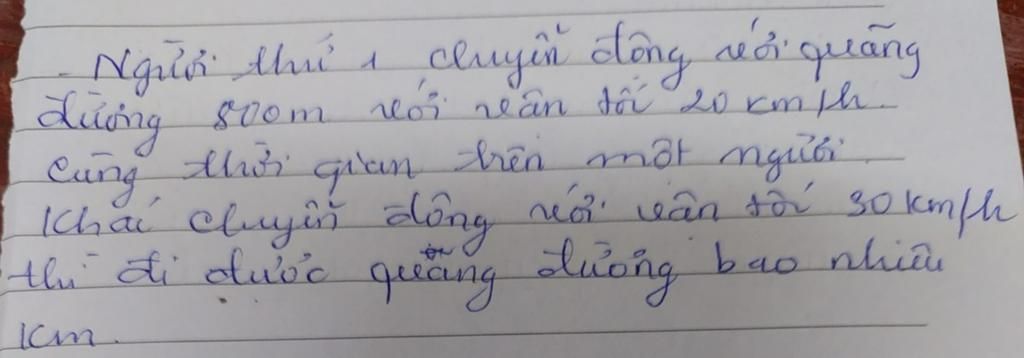 - Người thứ 1 chuyển động với quãng
đường 800m với vân tốc 20 km/h.
cùng thời gian trên một người
khác chuyển động với vân tốc 30 km/h
thì đi được quãng đường bao nhiêu
km.